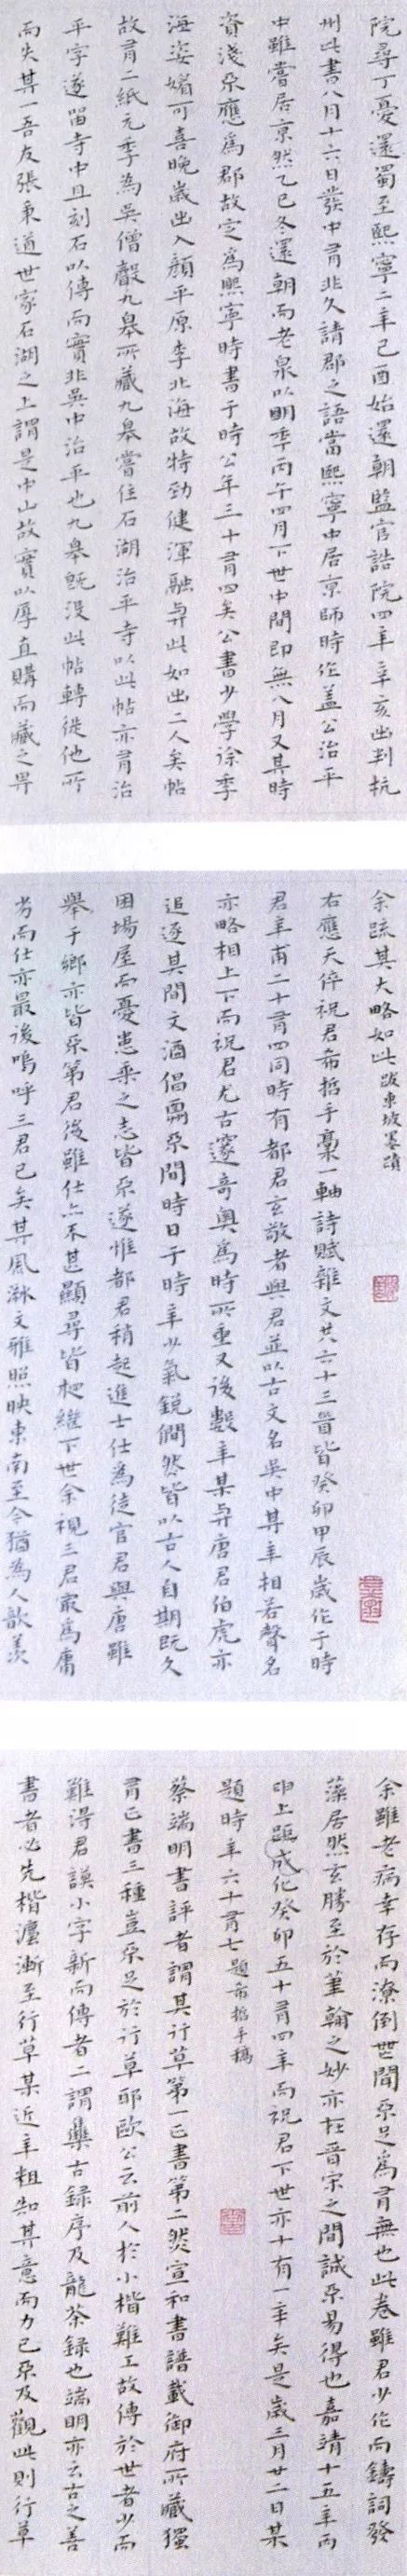 院尋丁憂還蜀至熙寧二年己酉始還朝監官誥院四年辛亥出判杭
州此書八月十六日發中有非久請郡之語當熙寧中居京師時作蓋公治平
中雖嘗居京然乙巳冬還朝而老泉以明年丙午四月下世中間即無八月又其時
資淺不應為郡故定為熙寧時書于時公年三十有四矣公書少學徐季
海姿媚可喜晚歲出入顏平原李北海故特勁健渾融與此如出二人矣帖
故有二紙元季為吳僧聲九皋所藏九皋嘗住石湖治平寺以此帖亦有治
平字遂留寺中且刻石以傳而實非吳中治平也九皋既沒此帖轉徙他所
而失其一吾友張秉道世家石湖之上謂是中山故實以厚直購而藏之畀
余疏其大略如此 跋東坡墨蹟
右應天倅祝君希哲手稾一軸詩賦雜文共六十三首皆癸卯甲辰歲作于時
君年甫二十有四同時有都君玄敬者與君並以古文名吳中其年相若聲名
亦略相上下而祝君尤古邃奇奧為時所重又後數年某與唐君伯虎亦
追逐其間文酒倡酬不間時日于時年少氣銳僩然皆以古人自期既久
困場屋而憂患乘之志皆不遂惟都君稍起進士仕為徒官君與唐雖
舉于鄉亦皆不第君後雖仕亦不甚顯尋皆相繼下世余視三君最為庸
劣而仕亦最後嗚呼三君已矣其風流文雅照映東南至今猶為人歆羨
余雖老病幸存而潦倒無聞不足為有無也此卷雖君少作而鑄詞發
藻居然玄勝至於筆翰之妙亦在晉宋之間誠不易得也嘉靖十五年丙
申上距成化癸卯五十有四年而祝君下世亦十有一年矣是歲三月廿二日某
題時年六十有七 題希哲手稿
蔡端明書評者謂其行草第一正書第二然宣和書譜載御府所藏獨
有正書三種豈不足於行草耶歐公云前人於小楷難工故傳於世者少而
難得君謨小字新而傳者二謂集古錄序及龍茶錄也端明亦云古之善
書者必先楷法漸至行草某近年粗知其意而力已不及觀此則行草